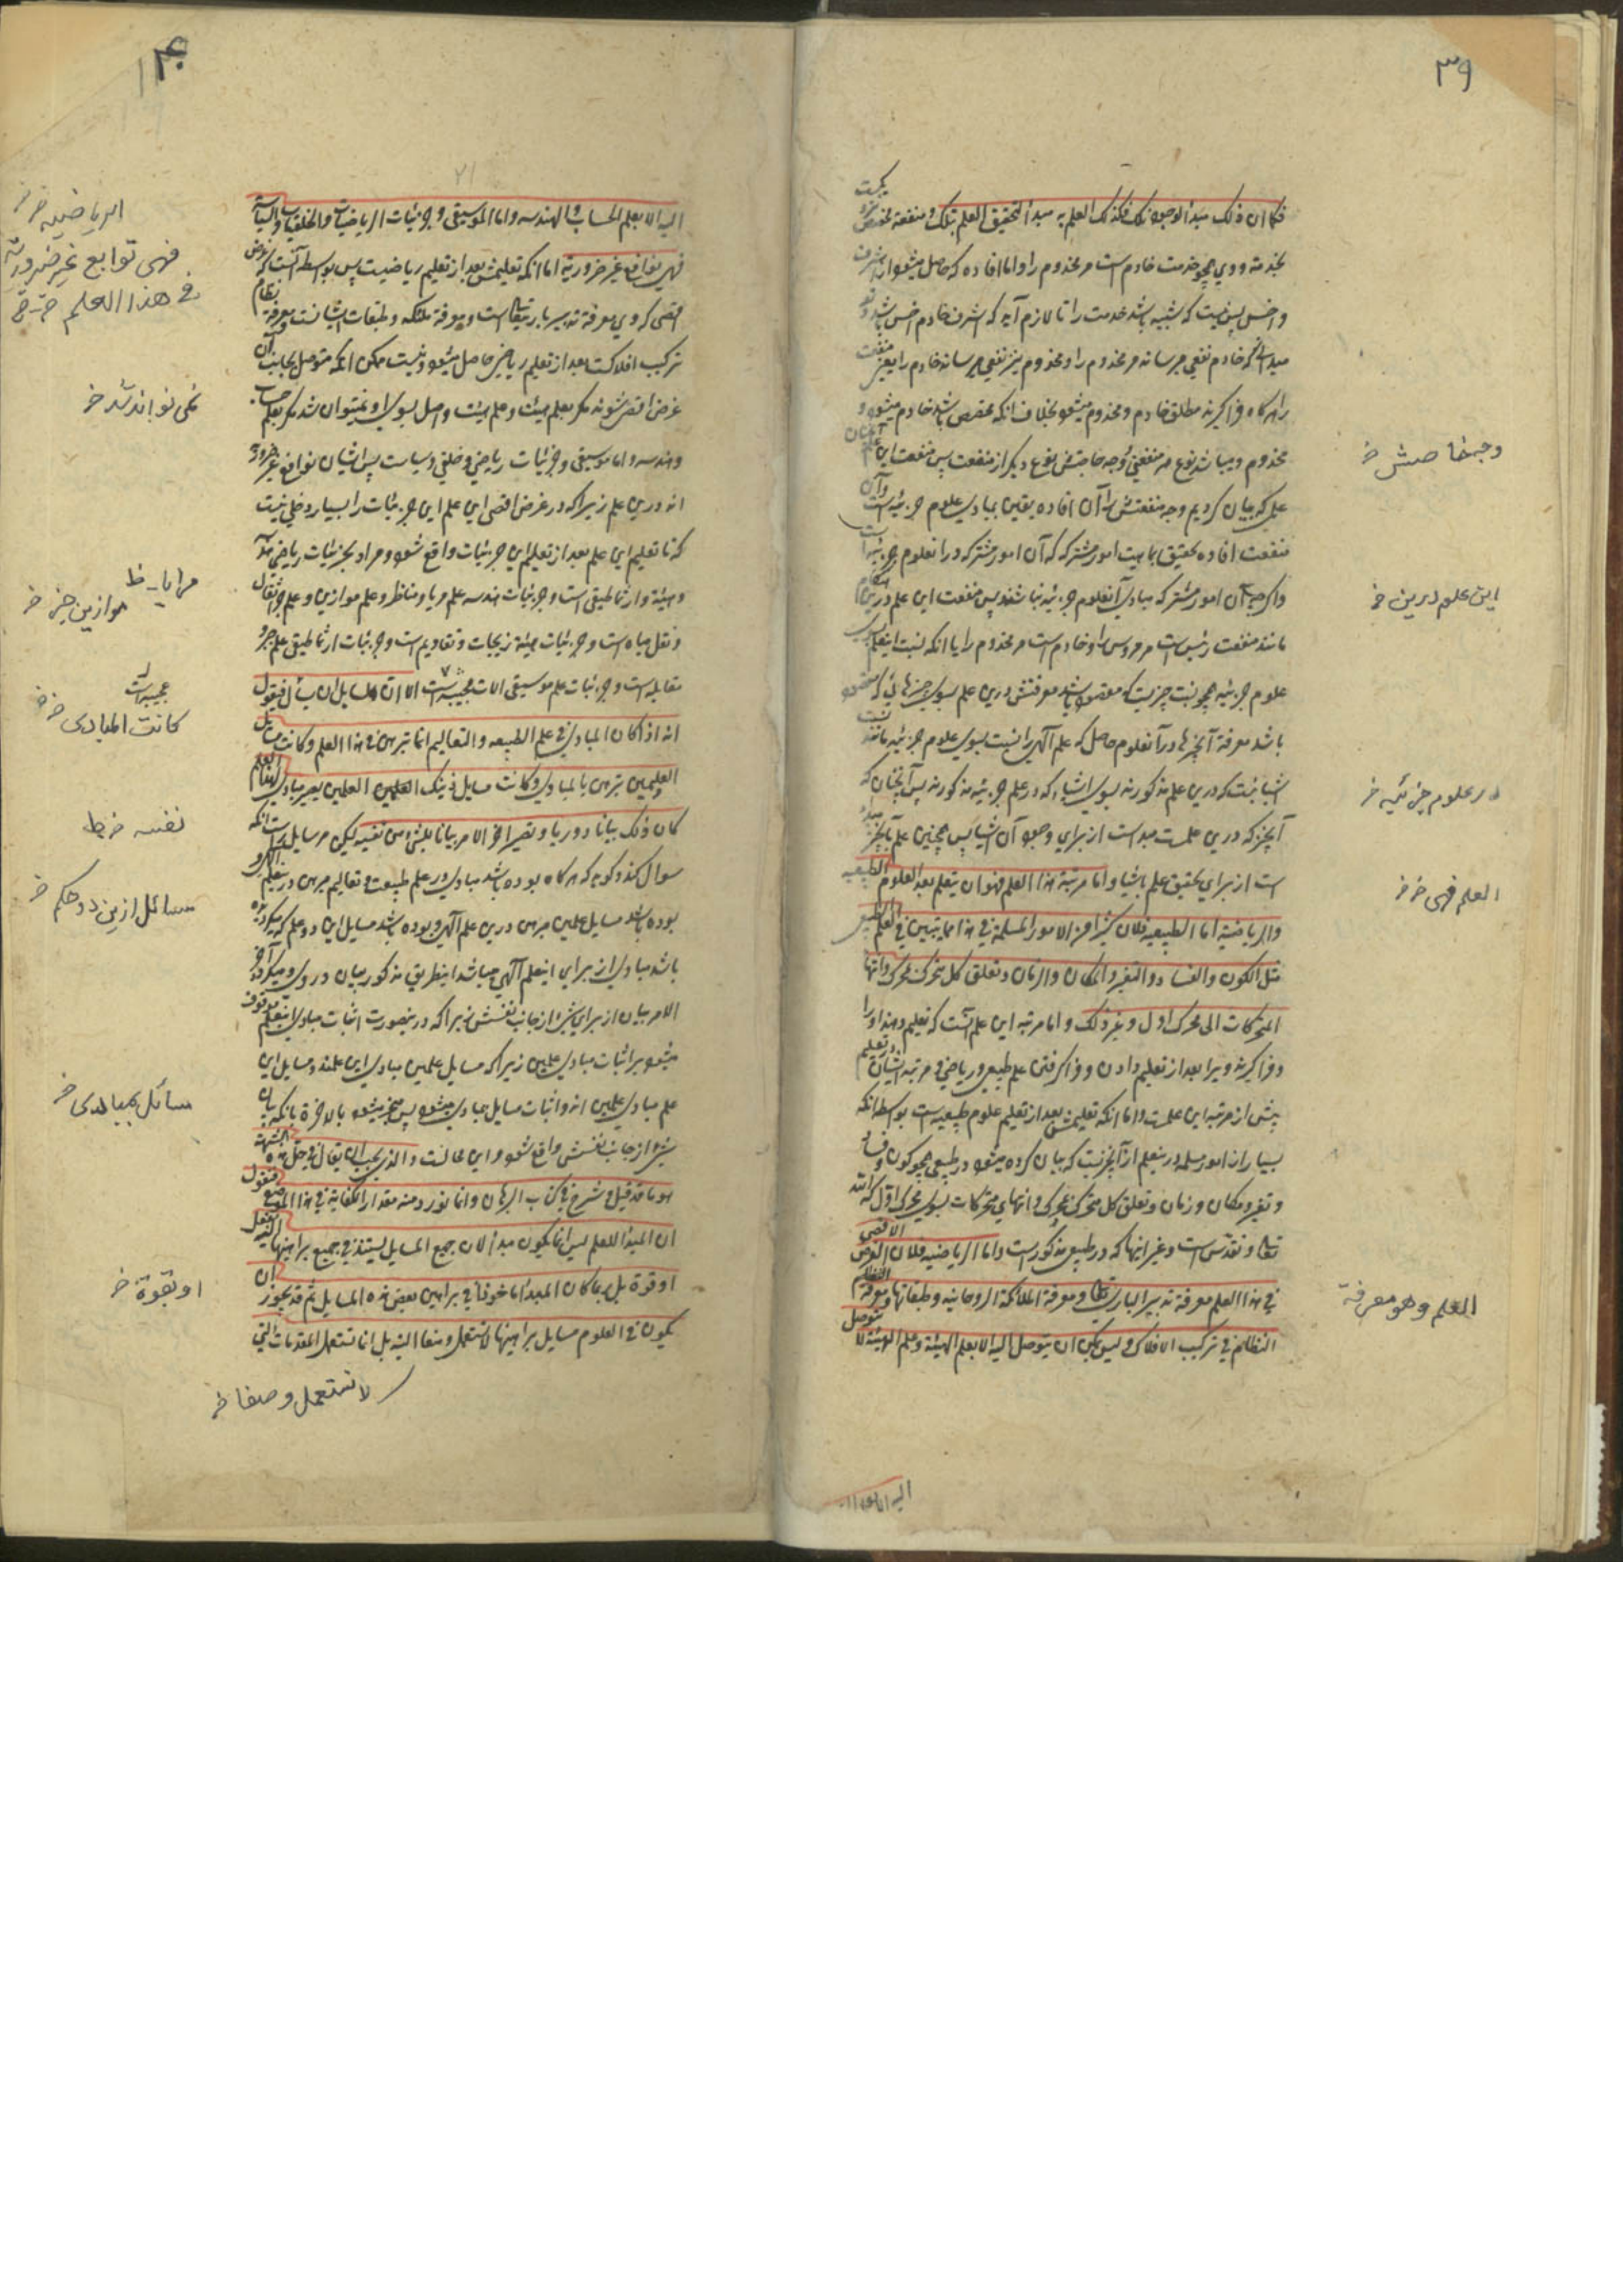 ۳۹
فكما ان ذلك مبدأ لوجود تلك فكذلك العلم به مبدأ لتحقيق العلم بتلك و منفعة
بخدمة و وی همچو خدمت خادم است مر مخدوم را و اما افاده که حاصل میشود از اشرف
و اخس پس نیست که شبیه باشد خدمت را تا لازم آید که اشرف خادم اخس باشد و تو
میدانی که خادم نفعی میرساند مر مخدوم را و مخدوم نیز نفعی میرساند خادم را یعنی منفعت
را هرگاه فراگیرند مطلق خادم و مخدوم میشود بخلاف آنکه مخصص باشد خادم میشود و
مخدوم و میباشد نوع هر منفعتی و وجه خاصش نوع دیگر از منفعت پس منفعت این علم
علم که بیان کردیم وجه منفعتش را آن افاده یقین بمبادی علوم جزئیه است و آن
منفعت افاده تحقیق ماهیت امور مشترکه که آن امور مشترکه در آن علوم جزئیه است
و اگر چه آن امور مشترکه مبادی آن علوم جزئیه نباشند پس منفعت این علم درین
مانند منفعت رئیس است مر مرؤس را و خادم است مر مخدوم را یا آنکه نسبت این علم بسوی
علوم جزئیه همچو نسبت چیزیست که مقصود باشد معرفتش درین علم بسوی چیزهائی که مقصود
باشد معرفة آنچیزها در آن علوم حاصل که علم الهی را نسبت بسوی علوم جزئیه مانند نسبت
اشیائیست که درین علم مذکورند بسوی اشیاء که در علم جزئیه مذکورند پس آنچنان که
آنچیز که درین علمست مبدأ است از برای وجود آن اشیا پس همچنین علم بآنچیز مبدأ
است از برای تحقیق علم باشیا و اما مرتبة هذا العلم فهو ان يتعلم بعد العلوم الطبيعيه
والرياضية اما الطبيعيه فلان كثيرا من الامور المسلمة في هذا مما يتبين في العلم الطبيعي
مثل الكون والفساد والتغير والمكان والزمان وتعلق كل متحرك بمحرك وانتهاء
المتحركات الى محرك اول و غير ذلك و اما مرتبه این علم آنست که تعلیم دهند او را
و فراگیرند ویرا بعد از تعلیم دادن و فراگرفتن علم طبیعی و ریاضی و مرتبه ایشان
پیش از مرتبه این علمست و اما آنکه تعلیمش بعد از تعلیم علوم طبیعیه است بواسطه آنکه
بسیار از امور مسلمه درین علم از آنچیزیست که بیان کرده میشود در طبیعی همچو کون و فساد
و تغیر و مکان و زمان و تعلق کل متحرک بمحرک و انتهای متحرکات بسوی محرک اول که الله
تعالی و تقدس است و غیر اینها که در طبیعی مذکور است و اما الرياضيه فلان الغرض الاقصى
في هذا العلم معرفة تدبير الباري تعالى و معرفة الملائكة الروحانيه و طبقاتها و معرفة
النظام في تركيب الافلاك و ليس يمكن ان يتوصل اليه الا بعلم الهيئة و علم الهيئة لا
وجه خاصش خ
این علوم درین خ
در علوم جزئیه خ
العلم فهی خ خ
العلم وهو معرفة
۴۰
اليه الا بعلم الحساب والهندسه واما الموسيقى و جزئيات الرياضيات والخلقيات والسياسة
فهي توابع غير ضرورية اما آنکه تعلیمش بعد از تعلیم ریاضیست پس بواسطه آنست که غرض
اقصی که وی معرفة تدبیر باری تعالی است و معرفة ملئکه و طبقات ایشانست و معرفة نظام
ترکیب افلاکست بعد از تعلیم ریاضی حاصل میشود و نیست ممکن آنکه متوصل بجانب آن
غرض اقصی شوند مگر بعلم هیئت و علم هیئت واصل بسوی او نمیتوان شد مگر بعلم حساب
و هندسه و اما موسیقی و جزئیات ریاضی و خلقی و سیاست پس ایشان توابع غیر ضروریه
اند درین علم زیرا که در غرض اقصی این علم این جزئیات را بسیار دخلی نیست
که تا تعلیم این علم بعد از تعلیم این جزئیات واقع شود و مراد بجزئیات ریاضی
و هیئة و ارثماطیقی است و جزئیات هندسه علم مرایا و مناظر و علم موازین و علم جر اثقال
و نقل میاه است و جزئیات هیئة زیجات و تقاویم است و جزئیات ارثماطیقی علم جبر و
مقابله است و جزئیات علم موسیقی آلات عجیبه است الا ان لسائل ان يسأل فيقول
انه اذا كان المبادي في علم الطبيعه والتعاليم انما تبرهن في هذا العلم وكانت مسايل
العلمين تبرهن بالمبادي وكانت مسايل ذينك العلمين تصير مبادي لهذا العلم
كان ذلك بيانا دوريا و يصير اخر الامر بيانا للشئ من نفسه لیکن مر سایل راست آنکه
سوال کند و گوید که هرگاه بوده باشد مبادی در علم طبیعت و تعالیم مبرهن درین علم الهی و
بوده باشد مسایل علمین مبرهن درین علم الهی و بوده باشد مسایل این دو علم که میگردیده
باشد مبادی از برای این علم الهی میباشد این طریق مذکور بیان دوری و میگردد آخر
الامر بیان از برای شئ از جانب نفسش زیرا که درین صورت اثبات مبادی این علم موقوف
میشود بر اثبات مبادی علمین زیرا که مسایل علمین مبادی این علمند و مسایل این
علم مبادی علمین اند و اثبات مسایل بمبادی میشود پس منجر میشود بالاخرة بآنکه بیان
شئ از جانب نفسش واقع شود و این محالست والذي يجب ان يقال في حل هذه الشبهة
هو ما قد قيل و شرح في كتاب البرهان وانما نورد منه مقدار الكفاية في هذا الموضع فنقول
ان المبدأ للعلم ليس انما يكون مبدأ لان جميع المسايل تستند في جميع براهينها اليه بفعل
او قوة بل ربما كان المبدأ ماخوذا في براهين بعض هذه المسايل ثم قد يجوز ان
يكون في العلوم مسايل براهينها لا تستعمل وضعا البتة بل انما تستعمل المقدمات التي
الریاضیه خ خ
فهی توابع غیر ضروریة
فی هذا العلم خ خ
نمی توانند شد خ
مرایا ـ خا
موازین جزء خ
کانت المبادی خ خ
نفسه خ ط
مسائل ازین دو حکم خ
مسائل بمبادی خ
او بقوة خ
لا تستعمل وضعا خ